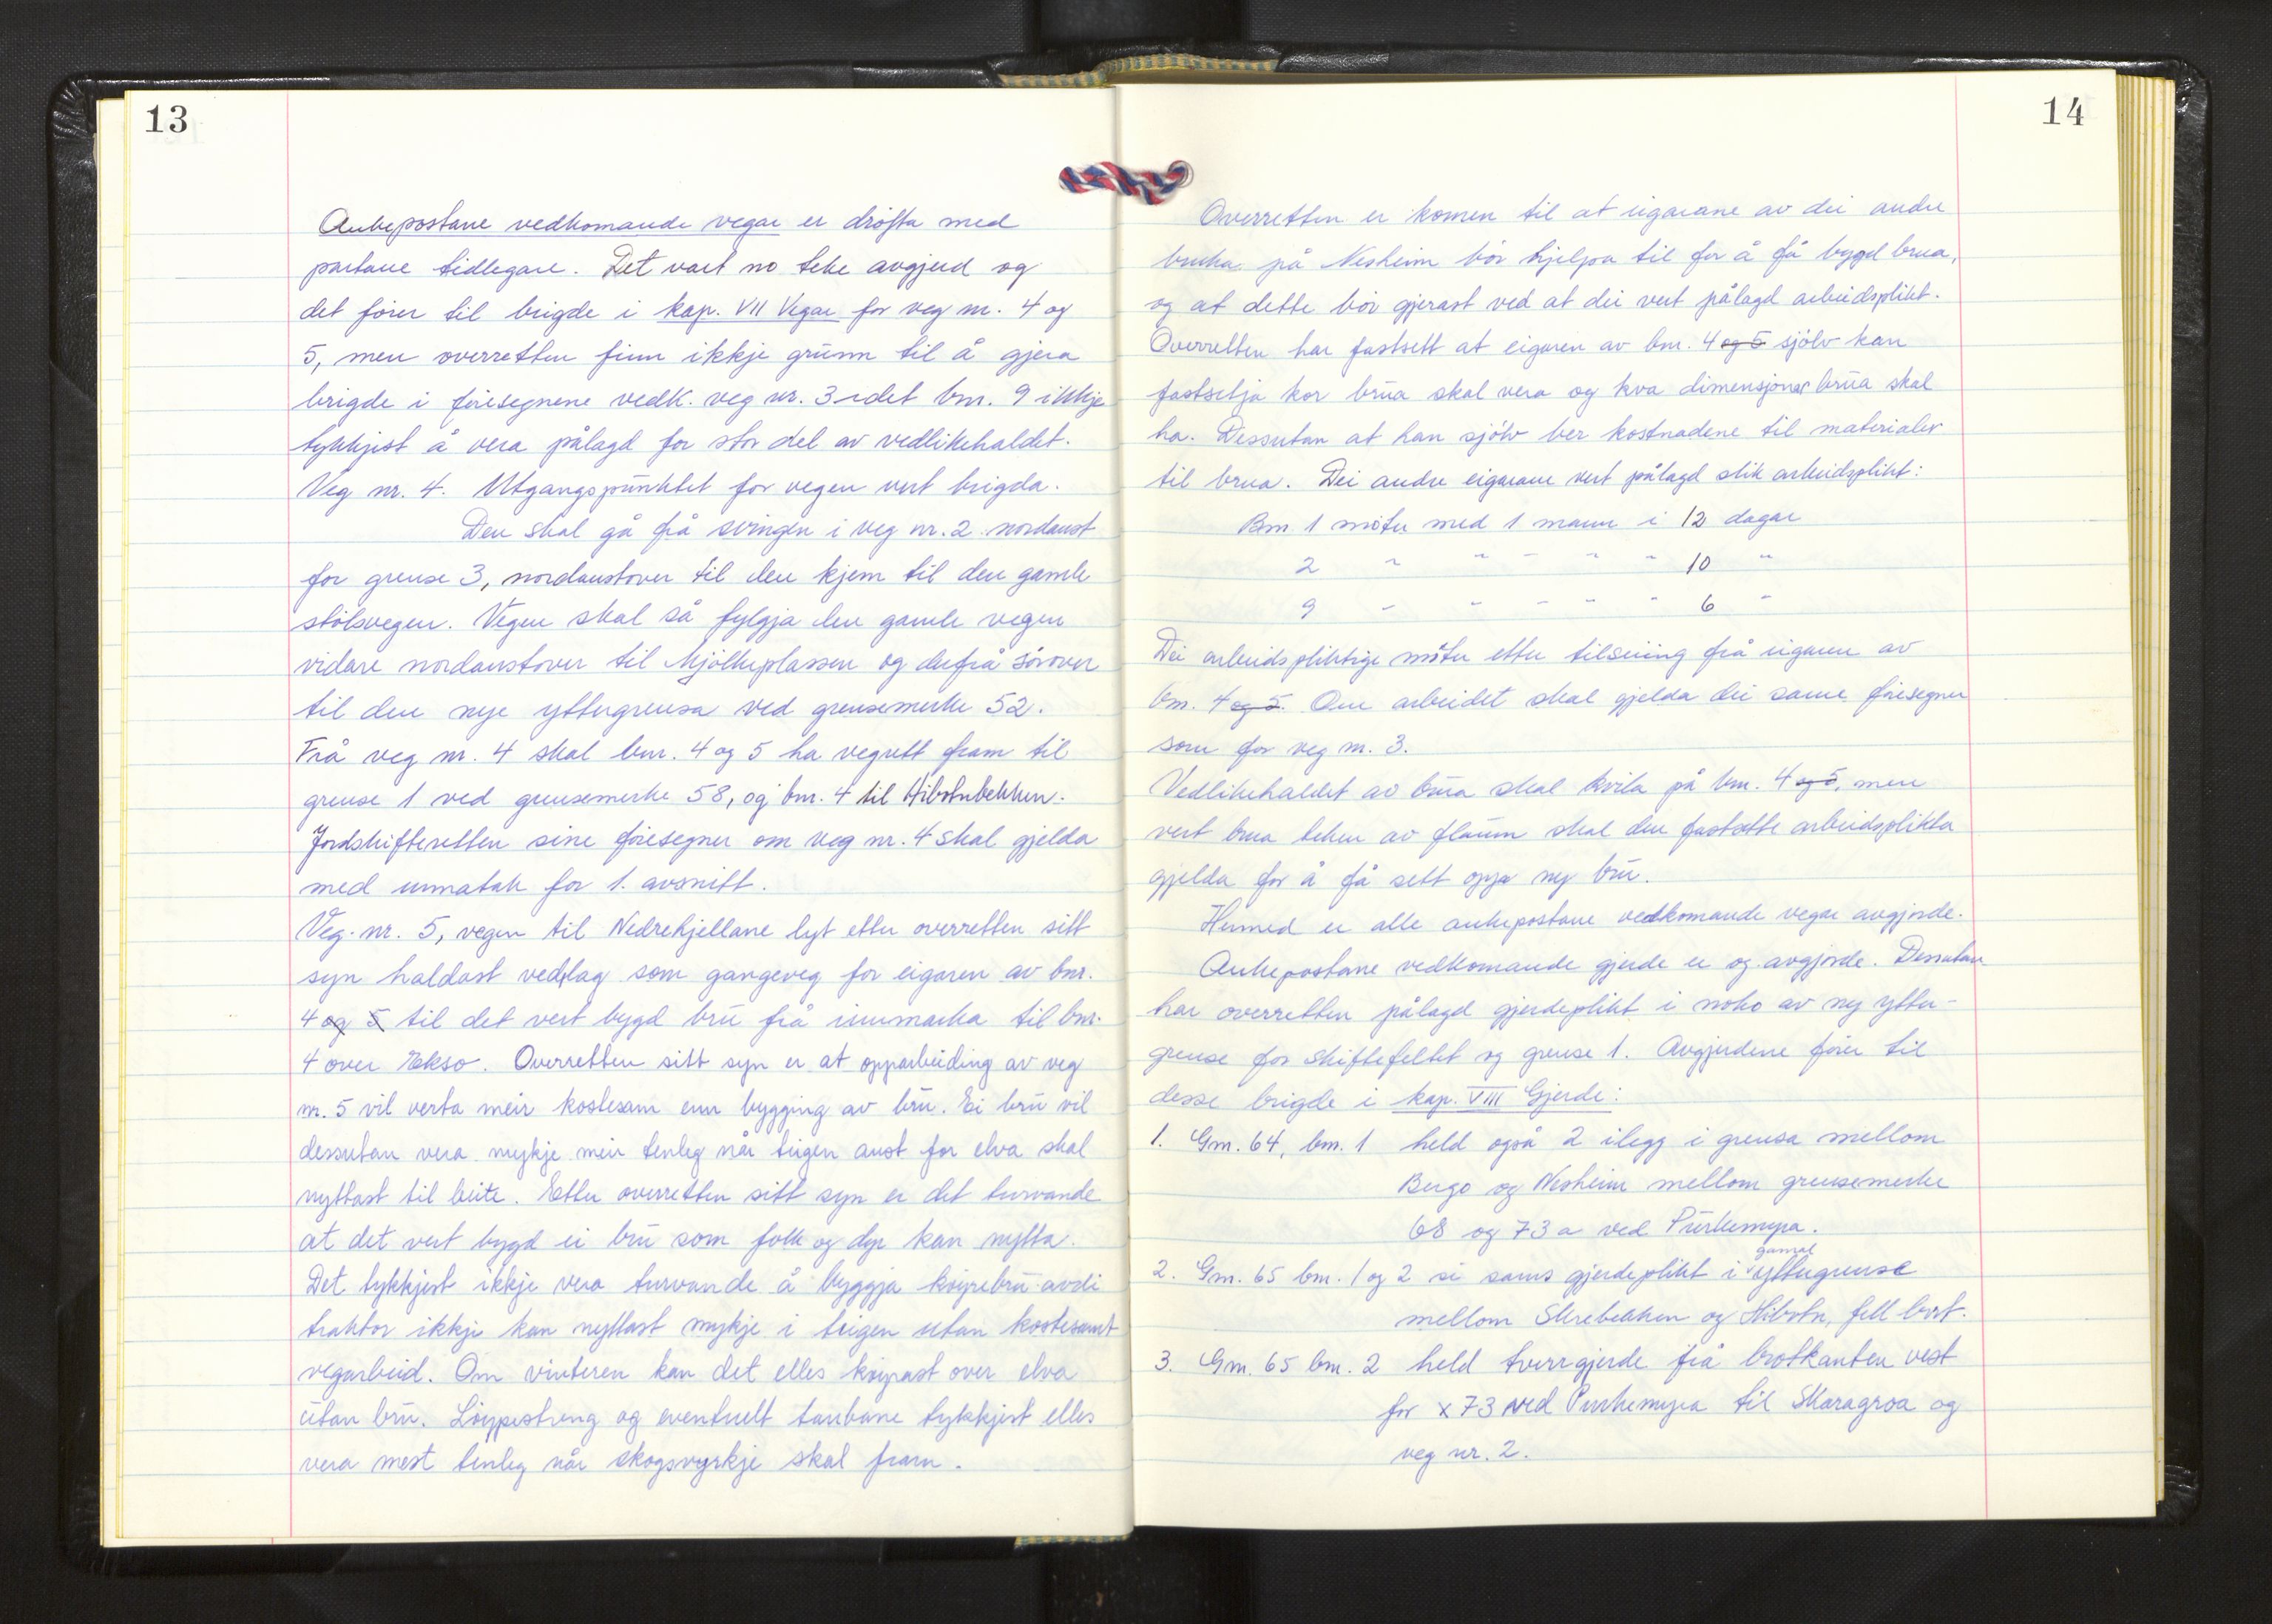 13
Ankepostane vedkomande vegar er drøfta med
partane tidlegare. Det vart no teke avgjerd og
det fører til brigde i kap. VII Vegar for veg nr. 4 og
5, men overretten finn ikkje grunn til å gjera
brigde i føresegnene vedk. veg nr. 3 idet bnr. 9 ikkje
tykkjest å vera pålagd for stor del av vedlikehaldet.
Veg nr. 4. Utgangspunktet for vegen vert brigda.
Den skal gå frå svingen i veg nr. 2 nordaust
for grense 3, nordaustover til den kjem til den gamle
stølsvegen. Vegen skal så fylgja den gamle vegen
vidare nordaustover til Mjølkeplassen og derfrå sørover
til den nye yttergrensa ved grensemerke 52.
Frå veg nr. 4 skal bnr. 4 og 5 ha vegrett fram til
grense 1 ved grensemerke 58, og bnr. 4 til Hibotnbekken.
Jordskifteretten sine føresegner om veg nr. 4 skal gjelda
med unnatak for 1. avsnitt.
Veg nr. 5, vegen til Nedrekjellane lyt etter overretten sitt
syn haldast vedlag som gangeveg for eigaren av bnr.
4 og 5 til det vert bygd bru frå innmarka til bnr.
4 over Ekso. Overretten sitt syn er at opparbeiding av veg
nr. 5 vil verta meir kostesam enn bygging av bru. Ei bru vil
dessutan vera mykje meir tenleg når teigen aust for elva skal
nyttast til beite. Etter overretten sitt syn er det turvande
at det vert bygd ei bru som folk og dyr kan nytta.
Det tykkjest ikkje vera turvande å byggja køyrebru avdi
traktor ikkje kan nyttast mykje i teigen utan kostesamt
vegarbeid. Om vinteren kan det elles køyrast over elva
utan bru. Løypestreng og eventuelt taubane tykkjest elles
vera mest tenleg når skogsvyrkje skal fram.
14
Overretten er komen til at eigarane av dei andre
bruka på Nesheim bør hjelpa til for å få bygd brua,
og at dette bør gjerast ved at dei vert pålagd arbeidsplikt.
Overretten har fastsett at eigaren av bnr. 4 og 5 sjølv kan
fastsetja kor brua skal vera og kva dimensjonar brua skal
ha. Dessutan at han sjølv ber kostnadene til materialer
til brua. Dei andre eigarane vert pålagd slik arbeidsplikt:
Bnr 1 møter med 1 mann i 12 dagar
2 " " " " " 10 "
9 " " " " " 6 "
Dei arbeidspliktige møter etter tilseiing frå eigaren av
bnr. 4 og 5. Om arbeidet skal gjelda dei same føresegner
som for veg nr. 3.
Vedlikehaldet av brua skal kvila på bnr. 4 og 5, men
vert brua teken av flaum skal den fastsette arbeidsplikta
gjelda for å få sett opp ny bru.
Hermed er alle ankepostane vedkomande vegar avgjorde.
Ankepostane vedkomande gjerde er og avgjorde. Dessutan
har overretten pålagd gjerdeplikt i noko av ny ytter-
grense for skiftefeltet og grense 1. Avgjerdene fører til
desse brigde i kap. VIII Gjerde:
1. Gnr. 64, bnr. 1 held også 2 ilegg i grensa mellom
Bergo og Nesheim mellom grensemerke
68 og 73 a ved Purkemyra.
2. Gnr. 65 bnr. 1 og 2 si sams gjerdeplikt i gamal yttergrense
mellom Skrebekken og Hibotn, fell bort.
3. Gnr. 65 bnr. 2 held tverrgjerde frå brotkanten vest
for x 73 ved Purkemyra til Skaragroa og
veg nr. 2.